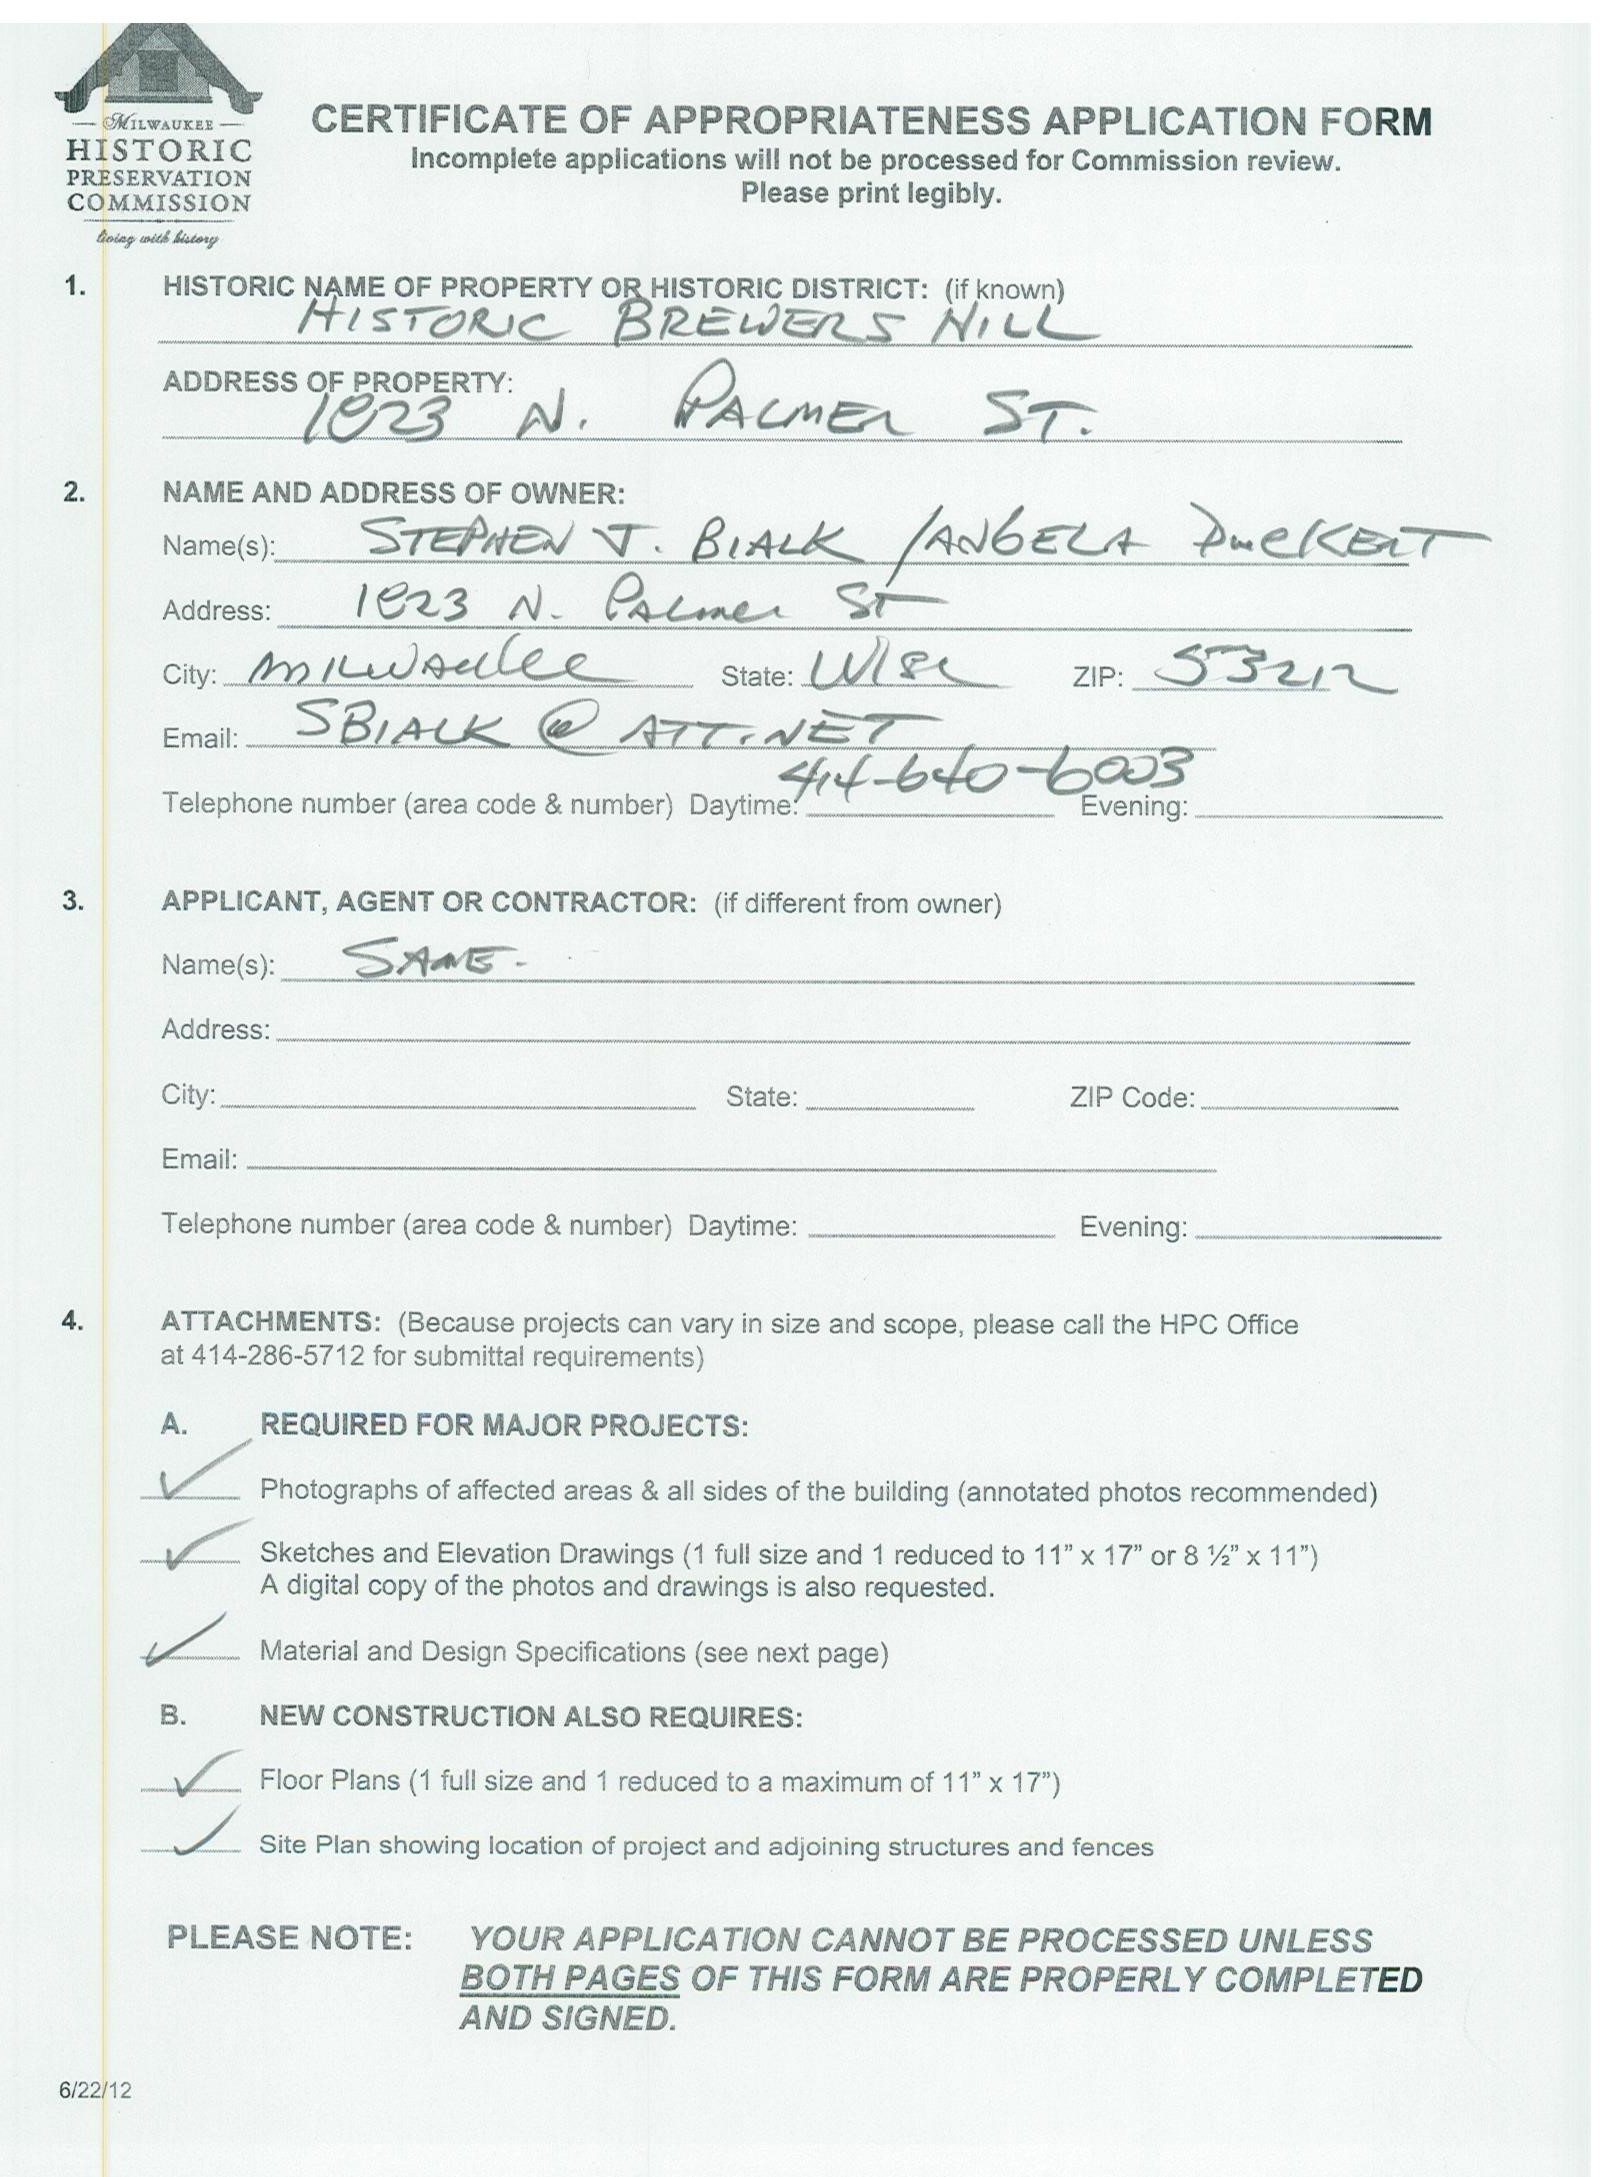 MILWAUKEE
HISTORIC
PRESERVATION
COMMISSION
living with history
CERTIFICATE OF APPROPRIATENESS APPLICATION FORM
Incomplete applications will not be processed for Commission review.
Please print legibly.
1. HISTORIC NAME OF PROPERTY OR HISTORIC DISTRICT: (if known)
HISTORIC BREWERS HILL
ADDRESS OF PROPERTY:
1823 N. PALMER ST.
2. NAME AND ADDRESS OF OWNER:
Name(s): STEPHEN J. BIALK / ANGELA DUCKERT
Address: 1823 N. PALMER ST
City: MILWAUKEE State: WISC ZIP: 53212
Email: SBIALK @ ATT.NET
414-640-6003
Telephone number (area code & number) Daytime: Evening:
3. APPLICANT, AGENT OR CONTRACTOR: (if different from owner)
Name(s): SAME.
Address:
City: State: ZIP Code:
Email:
Telephone number (area code & number) Daytime: Evening:
4. ATTACHMENTS: (Because projects can vary in size and scope, please call the HPC Office
at 414-286-5712 for submittal requirements)
A. REQUIRED FOR MAJOR PROJECTS:
Photographs of affected areas & all sides of the building (annotated photos recommended)
Sketches and Elevation Drawings (1 full size and 1 reduced to 11” x 17” or 8 ½” x 11”)
A digital copy of the photos and drawings is also requested.
Material and Design Specifications (see next page)
B. NEW CONSTRUCTION ALSO REQUIRES:
Floor Plans (1 full size and 1 reduced to a maximum of 11” x 17”)
Site Plan showing location of project and adjoining structures and fences
PLEASE NOTE: YOUR APPLICATION CANNOT BE PROCESSED UNLESS
BOTH PAGES OF THIS FORM ARE PROPERLY COMPLETED
AND SIGNED.
6/22/12